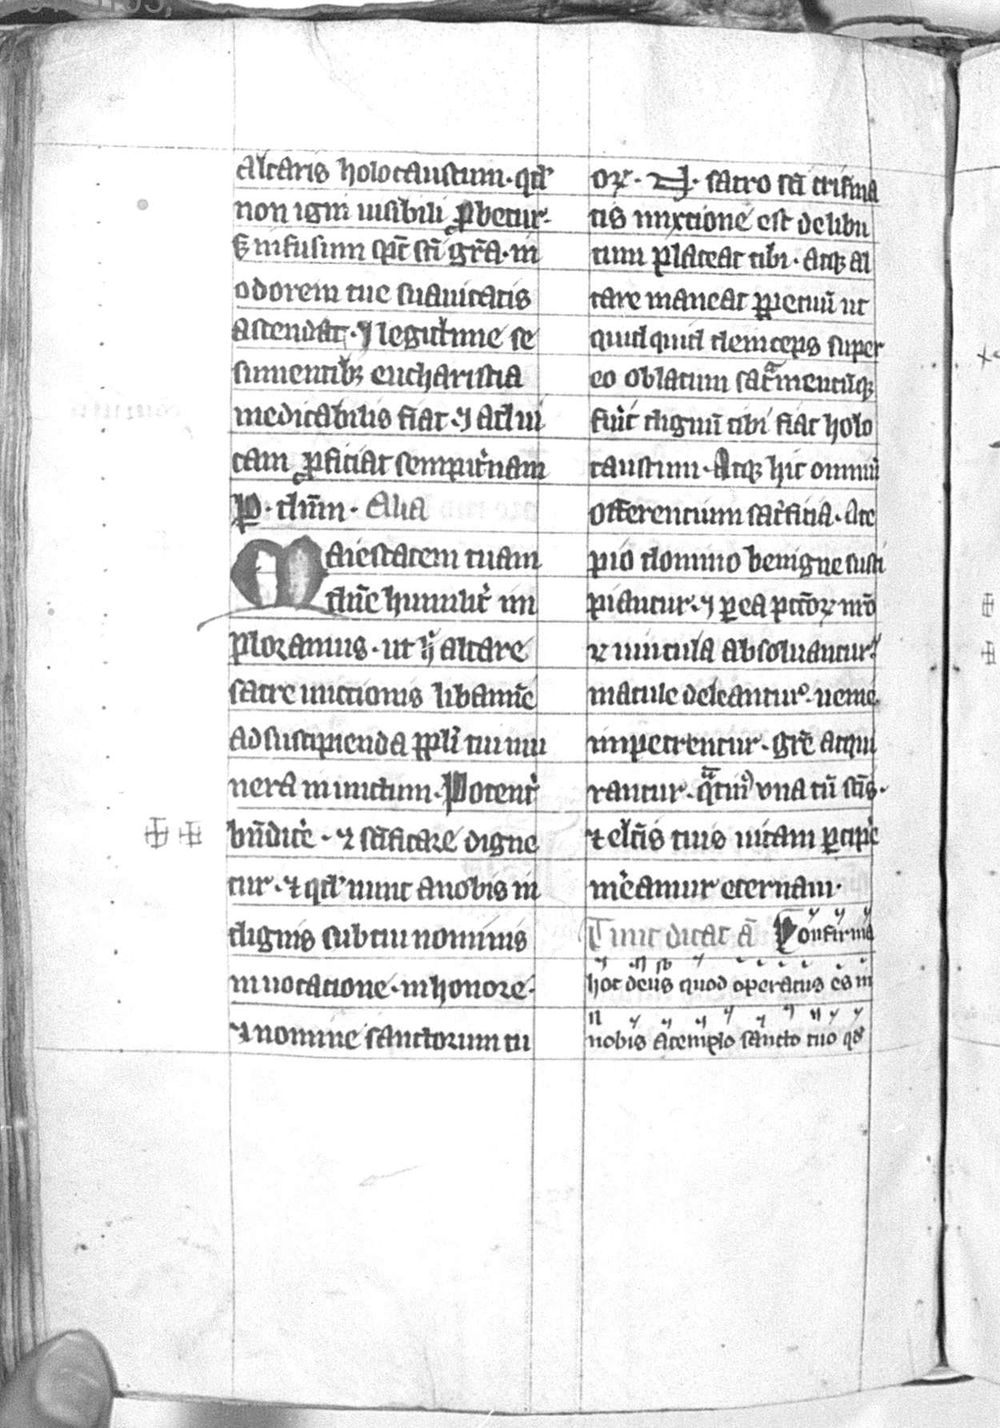 altaris holocaustum · qd'
non igni uisibili ꝓbetur ·
s; infusum spc̄ sc̄i gr̄a · in
odorem tue suauitatis
ascendat · ⁊ legittime se
sumentibꝫ eucharistia
medicabilis fiat · ⁊ ad ui
tam ꝓficiat sempit'nam
P̱ · dn̄m · Alia
Maiestatem tuam
dn̄e humilit' im
ploramus · ut h' altare
sacre unctionis libamīe
ad suscipienda ppl'i tui mu
nera inunctum · Potent'
bn̄dice' · ⁊ sc̄ificare digne
tur · ⁊ qd' nunc a nobis in
dignis sub tui nominis
inuocatione · in honore ·
⁊ nomine sanctorum tu
oꝝ · N · sacro sc̄i crisma
tis unxtione est delibu
tum placeat tibi · atqꝫ al
tare maneat ꝑpetuū ut
quidquid deinceps super
eo oblatum sac̄mentūqꝫ
fu'it dignū tibi fiat holo
caustum · Atqꝫ hic omniū
offerentium sac'ficia · Ate
pio domino benigne susci
piantur · ⁊ ꝑ ea pcc̄oꝝ nr̄o
ꝝ uincula absoluantur ·
macule deleantur · uenie
impetrentur · gr̄e acqui
rantur · q̄tin' vna cū sc̄is ·
⁊ elc̄is tuis uitam ꝑcip'e
me'amur eternam ·
Tunc dicat ā Confirma
hoc deus quod operatus es in
nobis a templo sancto tuo qd'